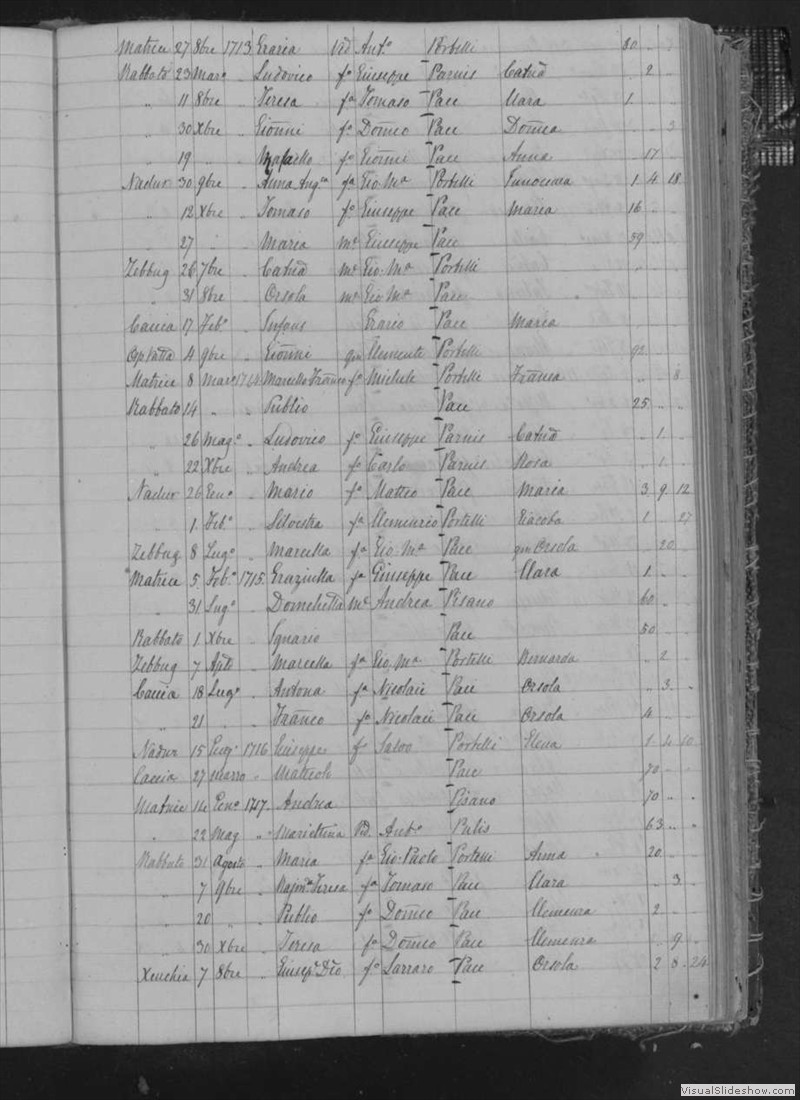 Matrice 27 8bre 1713 Grazia Vid Ant.o Portelli 80
Rabbato 23 Marzo Ludovico f.o Giuseppe Parnis Catña 2
" 11 8bre Teresa f.a Tomaso Pace Clara 1
" 30 Xbre Gioñni f.o Doñico Pace Doñica 3
" 19 " f.o Gioñni Pace Anna 17
Nadur 30 9bre Anna Ang.ca f.a Gio M.a Portelli Innocenza 1 4 18
" 12 Xbre Tomaso f.o Giuseppe Pace Maria 16
" 27 " Maria m.e Giuseppe Pace 39
Zebbug 26 7bre Catña m.e Gio. M.a Portelli
" 31 8bre Orsola m.e Gio M.a Pace
Caccia 17 Feb.o Pace Maria
4 9bre Gioñni qm Clemente Portelli 92
Matrice 8 Marzo 1714 Marcello Frañco f.o Michele Portelli Frañca 8
Rabbato 14 " Publio Pace 25
" 26 Mag.o Ludovico f.o Giuseppe Parnis Catña 1
" 22 Xbre Andrea f.o Carlo Parnis Rosa 1
Nadur 26 Gen.o Mario f.o Matteo Pace Maria 3 9 12
" 1 Feb.o Silvestra f.a Portelli Giacoba 1 27
Zebbug 8 Lug.o Marcella f.a Gio M.a Pace qm Orsola 20
Matrice 5 Feb.o 1715 Graziulla f.a Giuseppe Pace Clara 1
" 31 Lug.o m.e Andrea Pisano 60
Rabbato 1 Xbre Ignazio Pace 50
Zebbug 7 Marcella f.a Gio. M.a Portelli Bernarda 2
Caccia 18 Lug.o Antona f.a Nicolaii Pace Orsola 3
" 21 " Frañco f.o Nicolaii Pace Orsola 4
Nadur 15 1716 Giuseppe f Salvo Portelli Elena 1 4 10
Caccia 27 Marzo Matteolo Pace 70
Matrice 14 Gen.o 1717 Andrea Pisano 70
" 22 Mag Mariettina Vid. Ant.o Pulis 63
Rabbato 31 Agosto Maria f.a Gio-Paolo Portelli Anna 20
" 7 9bre Teresa f.a Tomaso Pace Clara 3
" 20 " Publio f.o Doñico Pace Clemenza 2
" 30 Xbre Teresa f.a Doñico Pace Clemenza 9
Xeuchia 7 8bre f.o Pace Orsola 2 8 24
VisualSlideshow.com